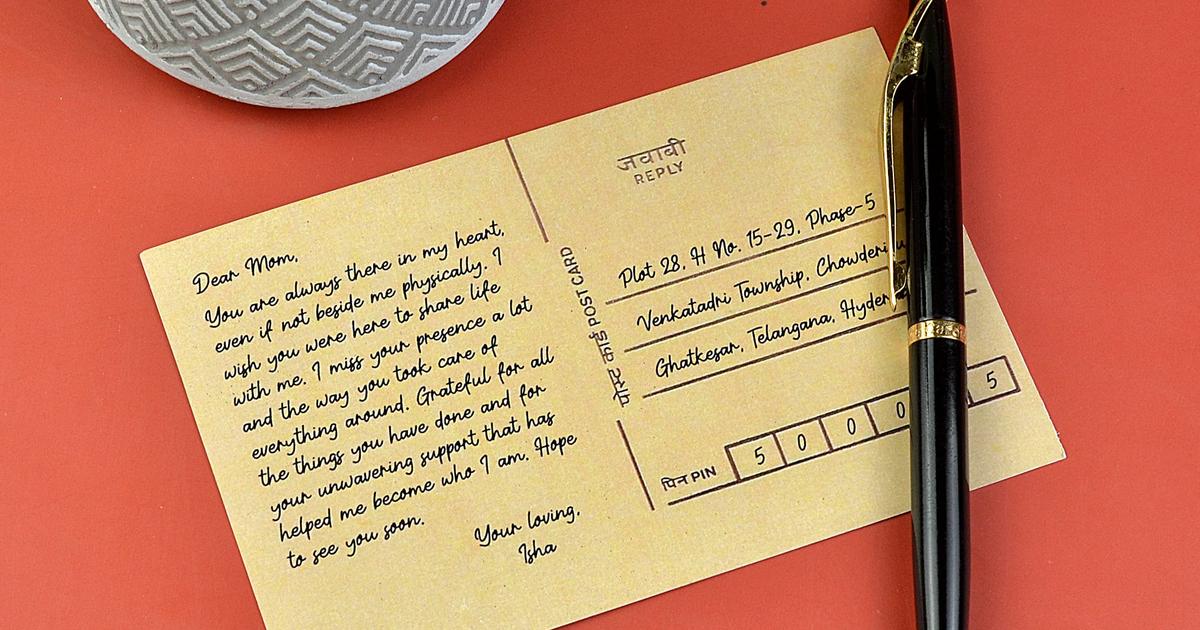 Dear Mom,
You are always there in my heart,
even if not beside me physically. I
wish you were here to share life
with me. I miss your presence a lot
and the way you took care of
everything around. Grateful for all
the things you have done and for
your unwavering support that has
helped me become who I am. Hope
to see you soon.
Your loving,
Isha
पोस्ट कार्ड POST CARD
जवाबी
REPLY
Plot 28, H No. 15-29, Phase-5
Venkatadri Township,
Ghatkesar, Telangana,
पिन PIN 5 0 0 0 5